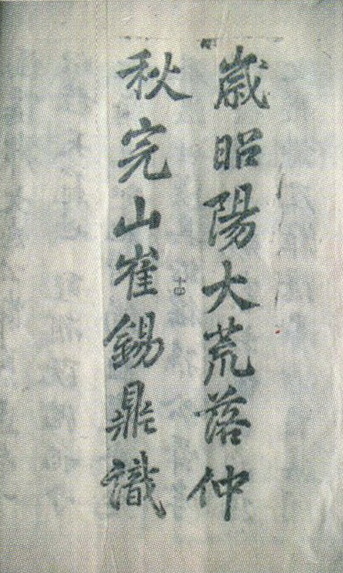 歲昭陽大荒落仲
秋完山崔錫鼎識